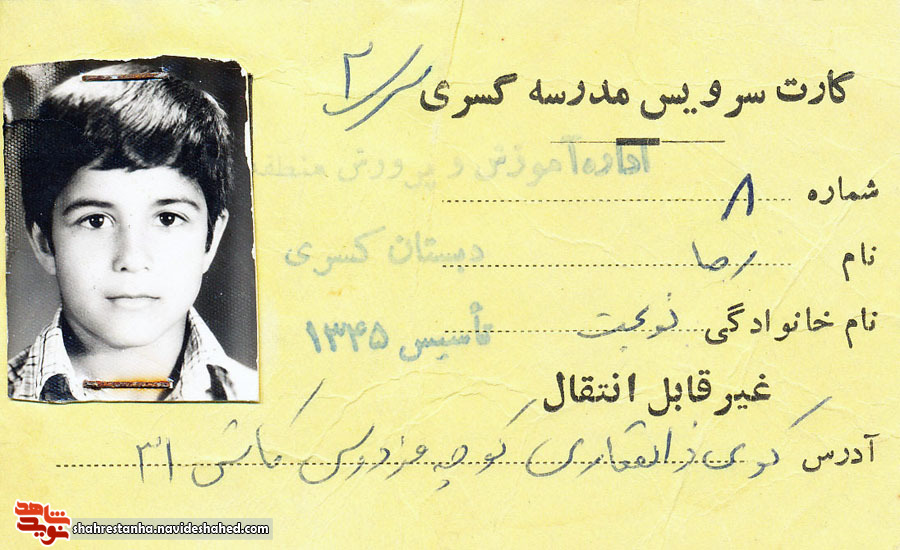 کارت سرویس مدرسه کسری
سرس ۲
اداره آموزش و پرورش منطقه
شماره ۸
نام رضا
دبستان کسری
نام خانوادگی نوبخت
تأسیس ۱۳۴۵
غیر قابل انتقال
آدرس کوی ذالفقاری کوچه فردوس کاشی ۳۱
شاهد
نوید
shahrestanha.navideshahed.com